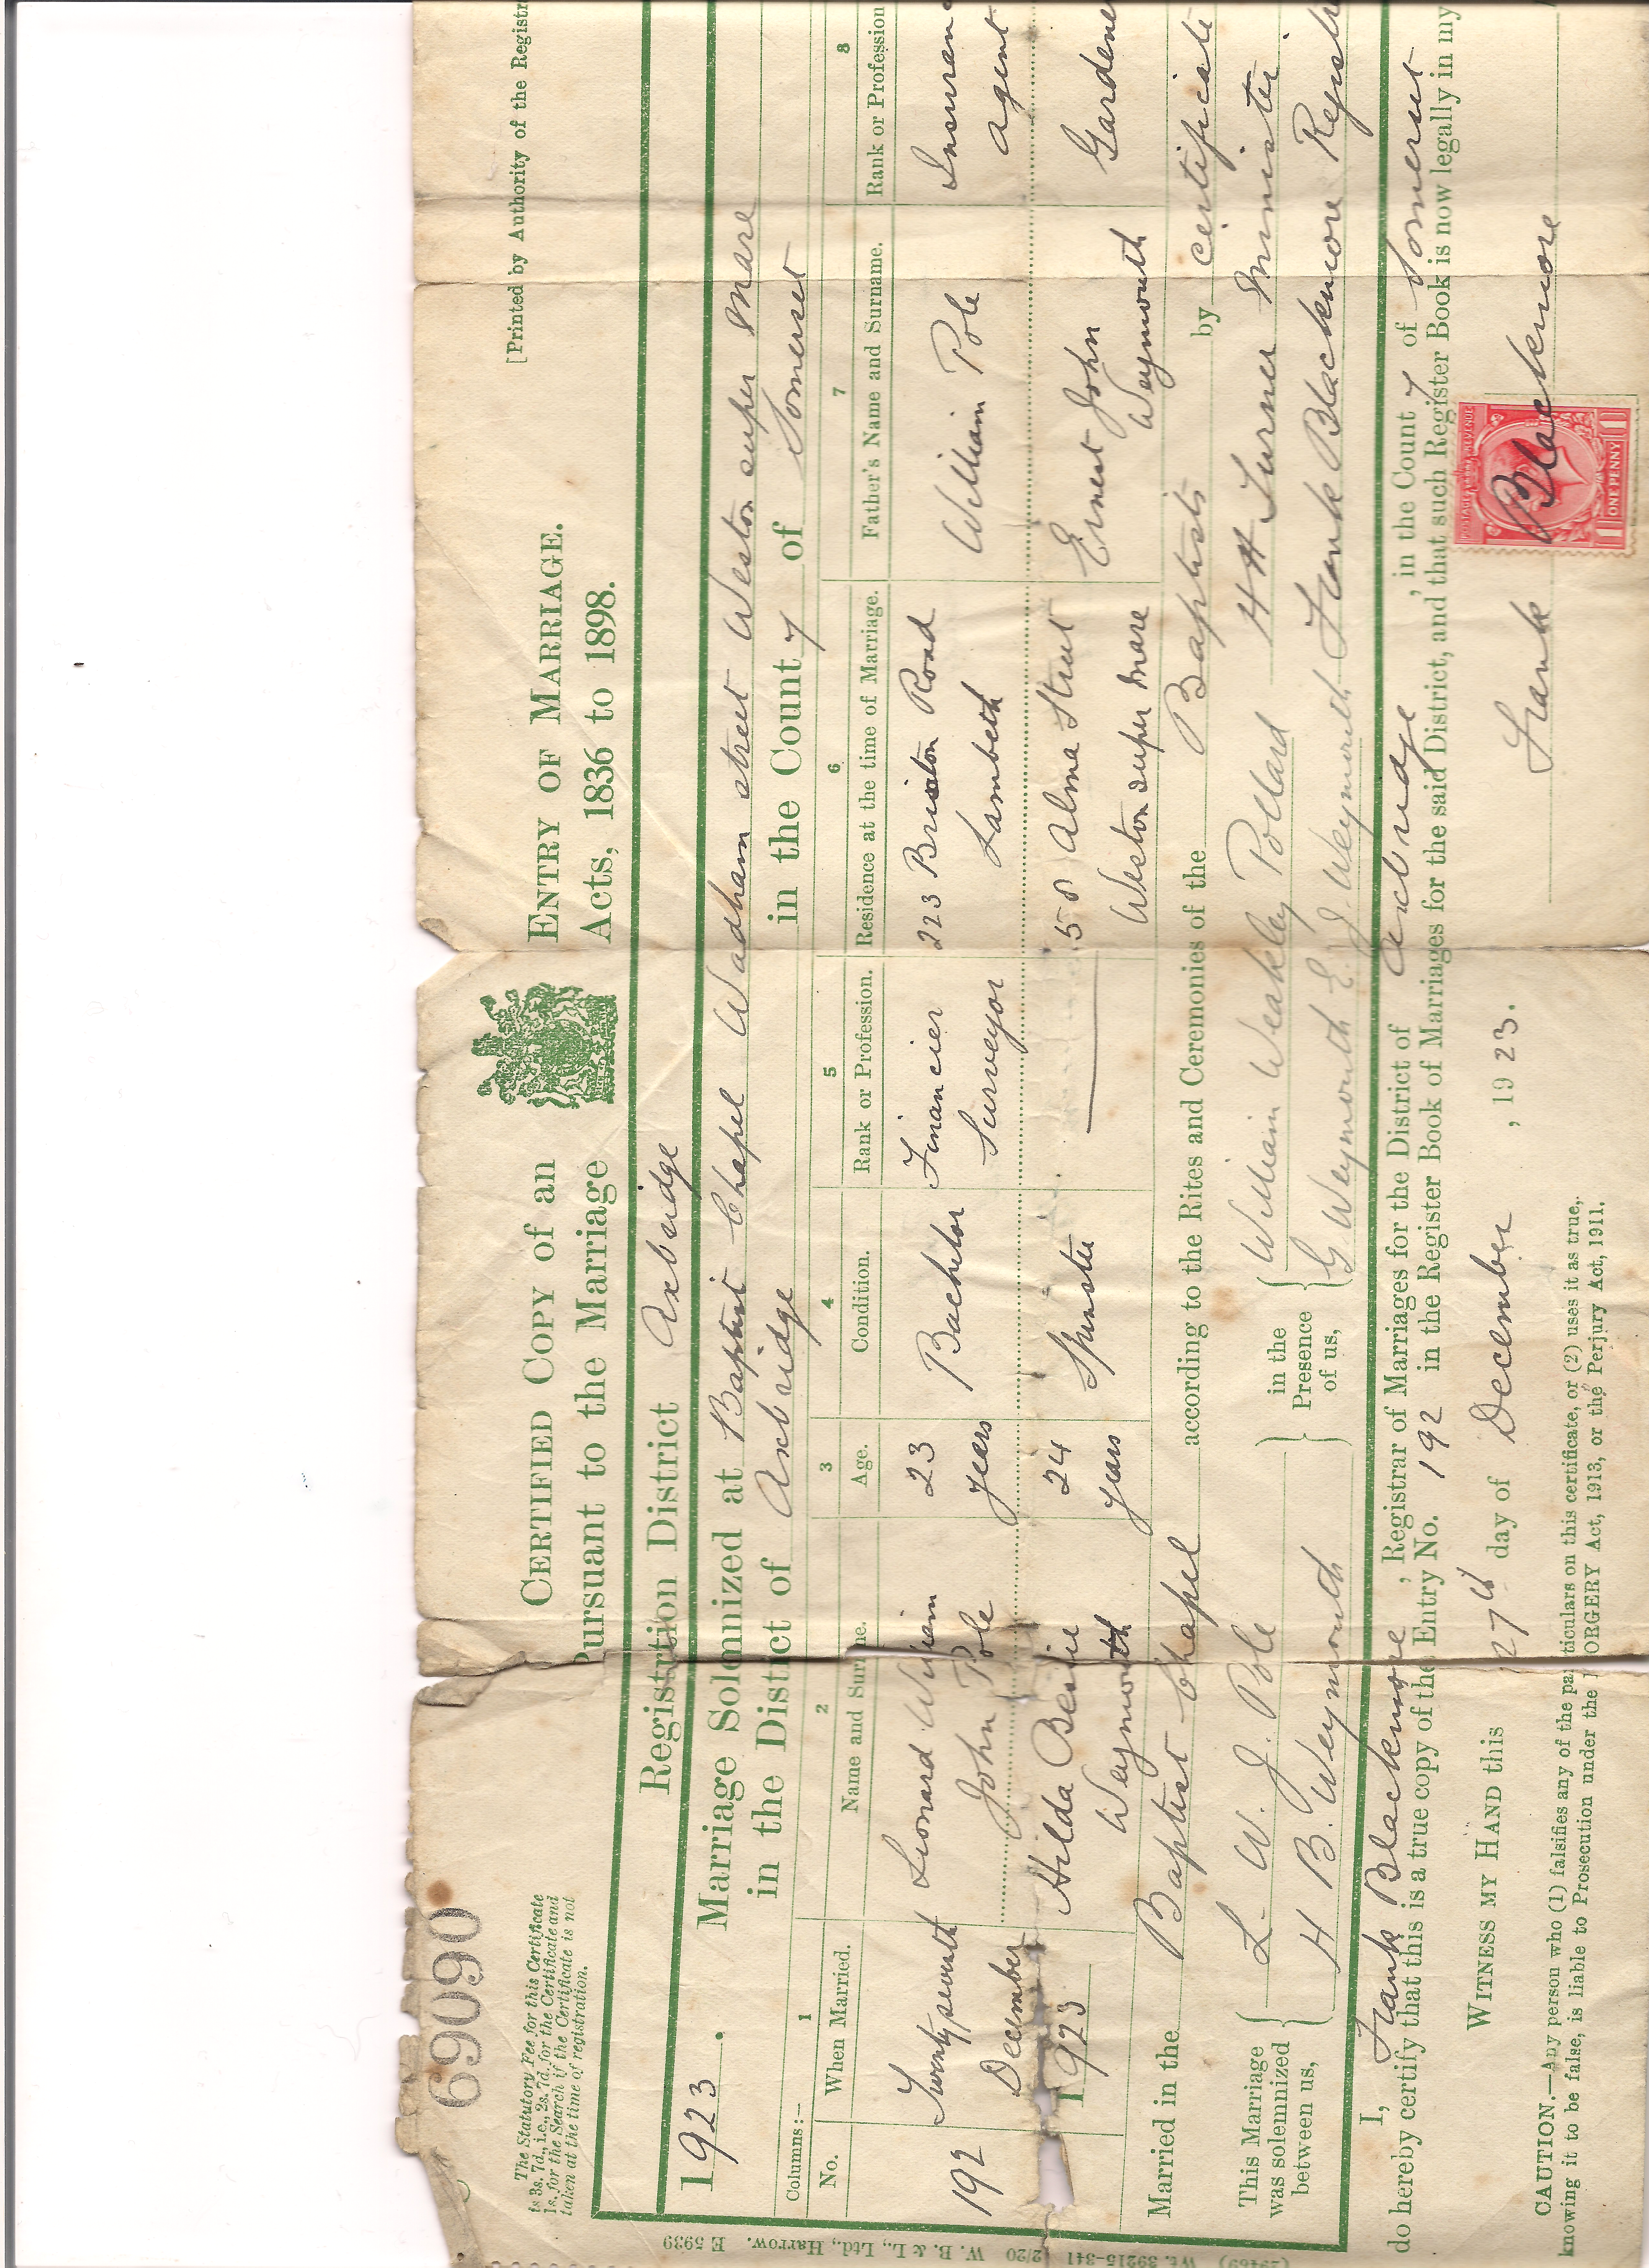 69090
[Printed by Authority of the Registr
The Statutory Fee for this Certificate
is 3s. 7d., i.e., 2s. 7d. for the Certificate and
1s. for the Search if the Certificate is not
taken at the time of registration.
CERTIFIED COPY of an ENTRY OF MARRIAGE.
Pursuant to the Marriage Acts, 1836 to 1898.
Registration District Axbridge
1923. Marriage Solemnized at Baptist Chapel Wadham street Weston super Mare
in the District of Axbridge in the County of Somerset
Columns:— 1 2 3 4 5 6 7 8
No. When Married. Name and Surname. Age. Condition. Rank or Profession. Residence at the time of Marriage. Father's Name and Surname. Rank or Profession
192 Twenty seventh Leonard William 23 Bachelor Financier 223 Brixton Road William Pole Insuranc
December John Pole years Surveyor Lambeth agent
1923 Hilda Bessie 24 Spinster 58 Alma Street Ernest John Gardene
Weymouth years Weston super Mare Weymouth
Married in the Baptist Chapel according to the Rites and Ceremonies of the Baptists by certificate
This Marriage was solemnized between us, L. W. J. Pole in the Presence of us, William Weakley Pollard H H Turner Minister
H B. Weymouth G Weymouth E. J. Weymouth Frank Blackmore Registr
I, Frank Blackmore, Registrar of Marriages for the District of Axbridge, in the County of Somerset
do hereby certify that this is a true copy of the Entry No. 192 in the Register Book of Marriages for the said District, and that such Register Book is now legally in my
WITNESS MY HAND this 27th day of December, 1923.
Frank Blackmore
POSTAGE REVENUE
1 ONE PENNY 1
CAUTION.—Any person who (1) falsifies any of the particulars on this certificate, or (2) uses it as true,
knowing it to be false, is liable to Prosecution under the FORGERY Act, 1913, or the Perjury Act, 1911.
(29469) Wt. 39215-341 2/20 W. B. & L., Ltd., Harrow. E 5939